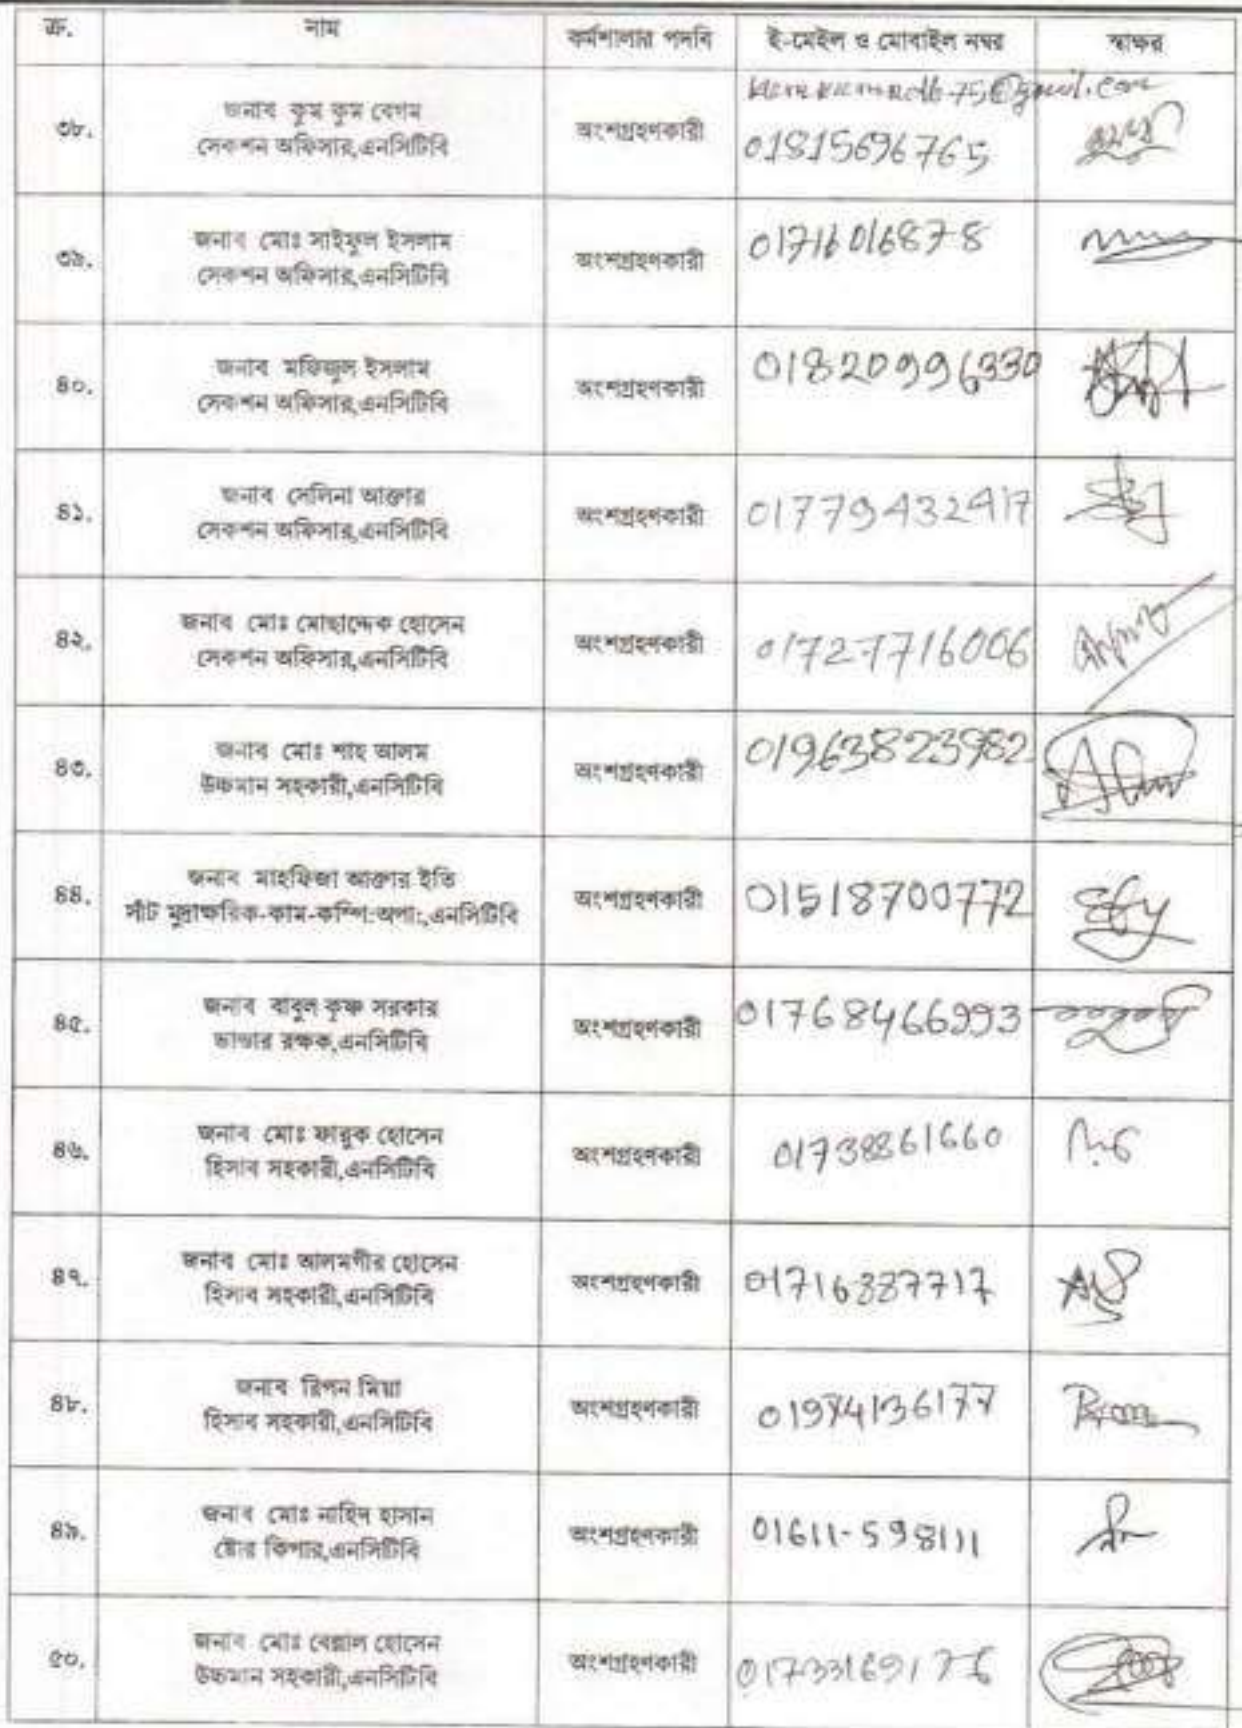 ক্র. নাম কর্মশালার পদবি ই-মেইল ও মোবাইল নম্বর স্বাক্ষর
৩৮. জনাব কুম কুম বেগম
সেকশন অফিসার,এনসিটিবি অংশগ্রহণকারী 01815696765
৩৯. জনাব মোঃ সাইফুল ইসলাম
সেকশন অফিসার,এনসিটিবি অংশগ্রহণকারী 01716016878
৪০. জনাব মফিজুল ইসলাম
সেকশন অফিসার,এনসিটিবি অংশগ্রহণকারী 01820996330
৪১. জনাব সেলিনা আক্তার
সেকশন অফিসার,এনসিটিবি অংশগ্রহণকারী
৪২. জনাব মোঃ মোছাদ্দেক হোসেন
সেকশন অফিসার,এনসিটিবি অংশগ্রহণকারী 01727716006
৪৩. জনাব মোঃ শাহ আলম
উচ্চমান সহকারী,এনসিটিবি অংশগ্রহণকারী 01963823982
৪৪. জনাব মাহফিজা আক্তার ইতি
সাঁট মুদ্রাক্ষরিক-কাম-কম্পি:অপা:,এনসিটিবি অংশগ্রহণকারী 01518700772
৪৫. জনাব বাবুল কৃষ্ণ সরকার
ভান্ডার রক্ষক,এনসিটিবি অংশগ্রহণকারী 01768466993
৪৬. জনাব মোঃ ফারুক হোসেন
হিসাব সহকারী,এনসিটিবি অংশগ্রহণকারী 01738861660
৪৭. জনাব মোঃ আলমগীর হোসেন
হিসাব সহকারী,এনসিটিবি অংশগ্রহণকারী
৪৮. জনাব রিপন মিয়া
হিসাব সহকারী,এনসিটিবি অংশগ্রহণকারী 01974136177
৪৯. জনাব মোঃ নাহিদ হাসান
ষ্টোর কিপার,এনসিটিবি অংশগ্রহণকারী 01611-598111
৫০. জনাব মোঃ বেল্লাল হোসেন
উচ্চমান সহকারী,এনসিটিবি অংশগ্রহণকারী